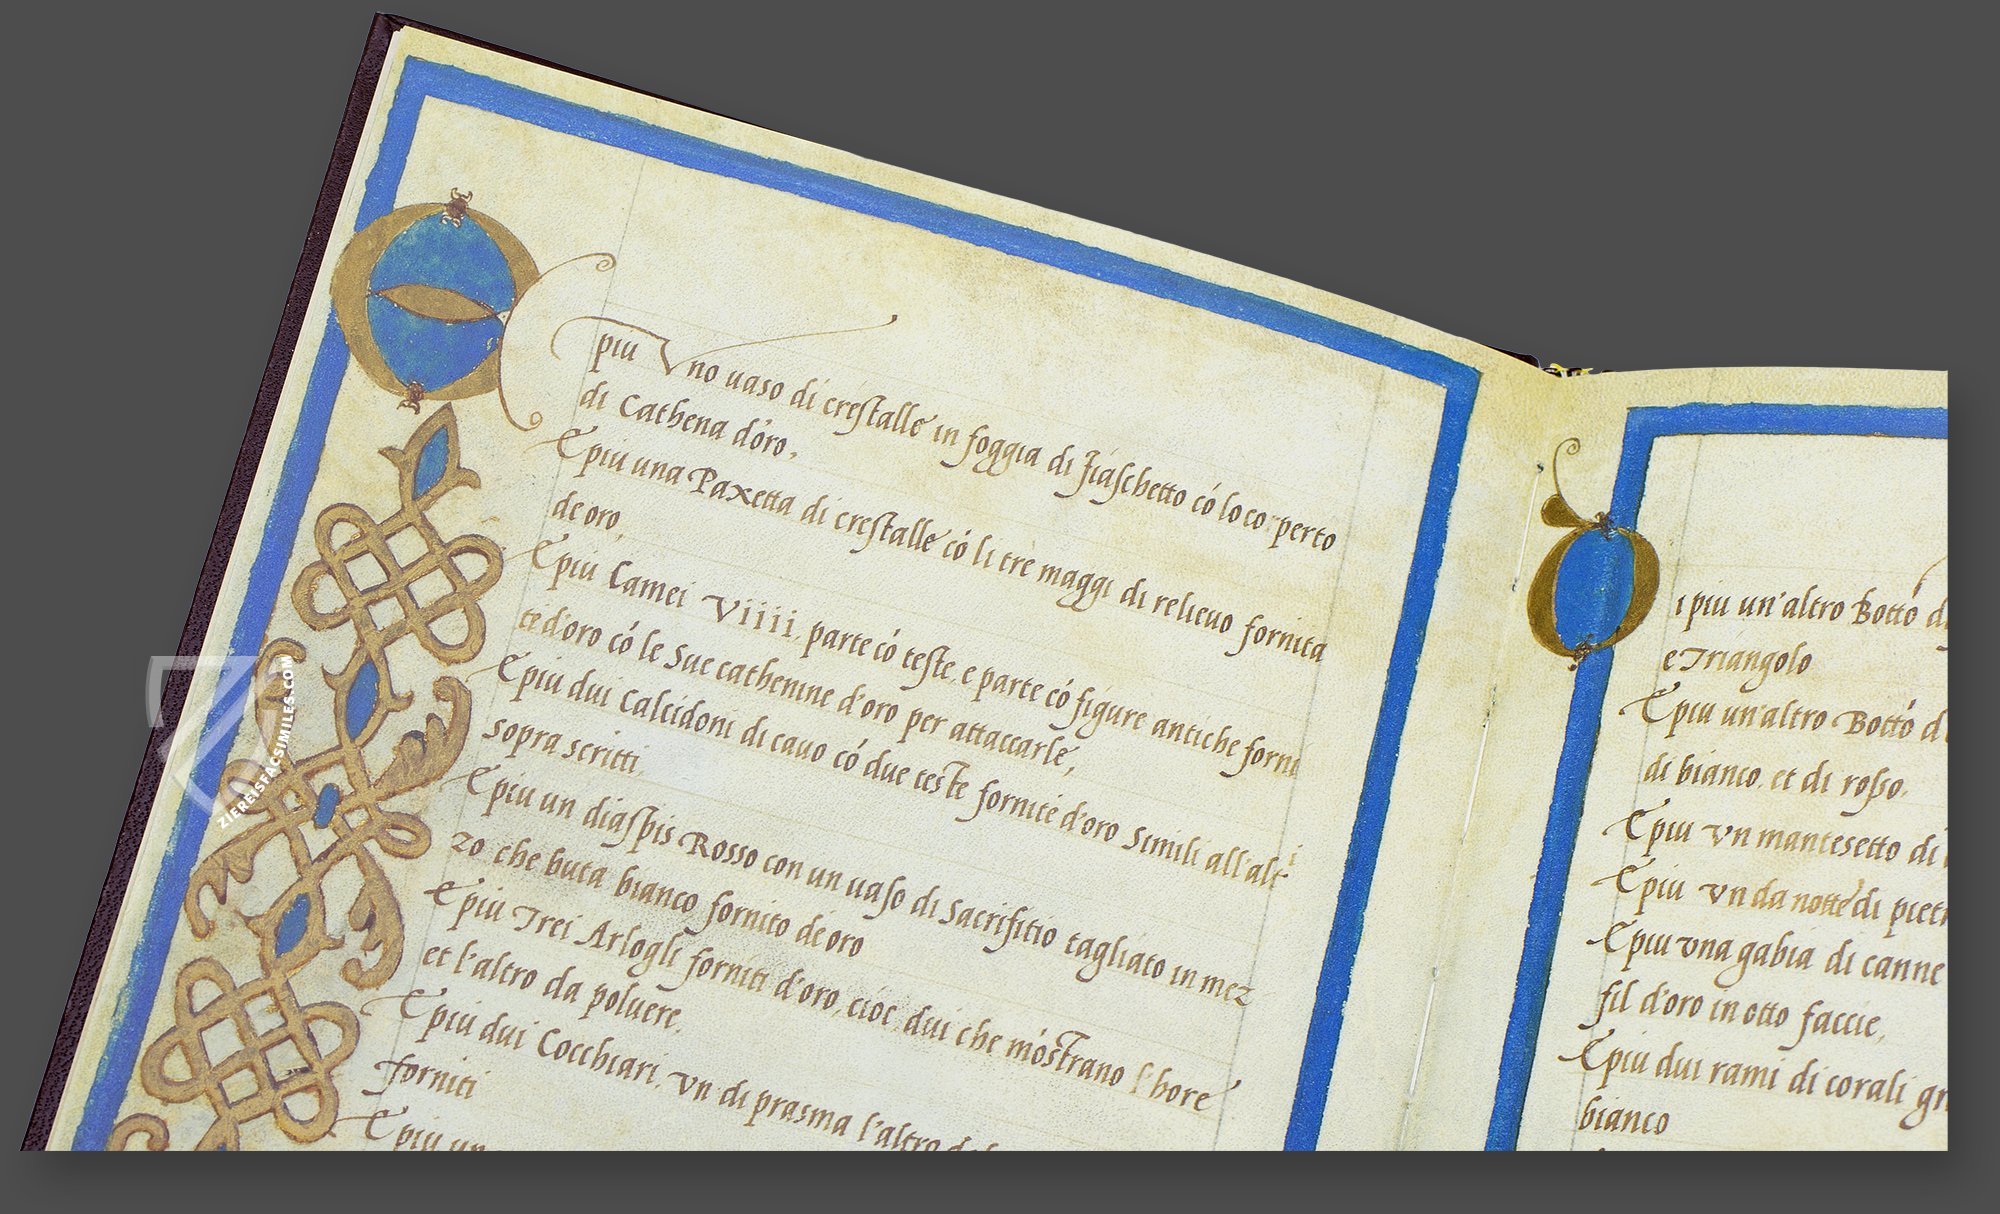 E piu Vno uaso di crestalle in foggia di fiaschetto có lo coperto
di Cathena d'oro,
E piu una Paxetta di crestalle có li tre maggi di relieuo fornita
de oro,
E piu Camei Viiii, parte có teste, e parte có figure antiche forni
te d'oro có le Sue cathenine d'oro per attaccarle,
E piu dui Calcidoni di cauo có due teste fornite d'oro Simili all'altri
sopra scritti,
E piu un diaspis Rosso con un uaso di Sacrifitio tagliato in mez
zo che buta bianco fornito de oro
E piu Trei Arlogli forniti d'oro, cioe, dui che móstrano l'hore
et l'altro da poluere,
E piu dui Cocchiari, vn di prasma l'altro
forniti
E piu un
Di piu un'altro Bottó
e Triangolo
E piu un'altro Bottó d
di bianco, et di rosso,
E piu vn mantesetto di
E piu vn da notte di piet
E piu vna gabia di canne
fil d'oro in otto faccie,
E piu dui rami di corali gr
bianco
ZIEREISFACSIMILES.COM